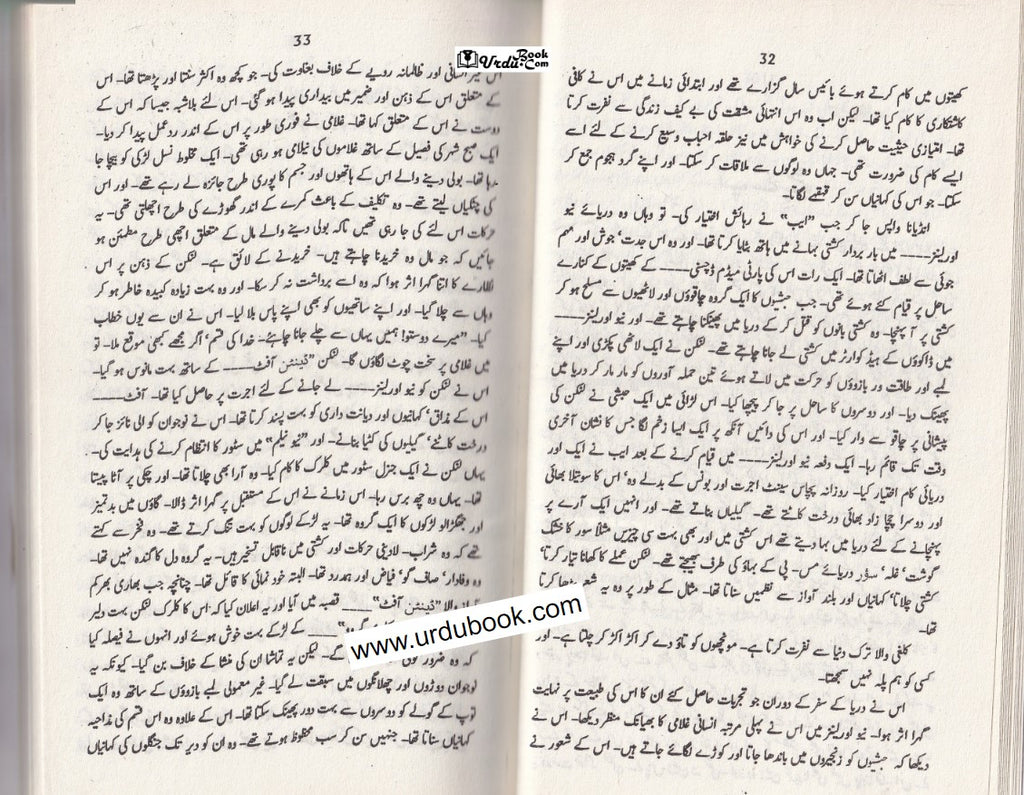 32
کھیتوں میں کام کرتے ہوئے بائیس سال گزارے تھے اور ابتدائی زمانے میں اس نے کافی
کاشتکاری کا کام کیا تھا۔ لیکن اب وہ اس انتہائی مشقت کی بے کیف زندگی سے نفرت کرتا
تھا۔ امتیازی حیثیت حاصل کرنے کی خواہش میں نیز حلقہ احباب وسیع کرنے کے لئے اسے
ایسے کام کی ضرورت تھی۔ جہاں وہ لوگوں سے ملاقات کر سکتا۔ اور اپنے گرد ہجوم جمع کر
سکتا۔ جو اس کی کہانیاں سن کر قہقہے لگاتا۔
انڈیانا واپس جا کر جب "ایب" نے رہائش اختیار کی۔ تو وہاں وہ دریائے نیو
اورلینز____ میں بار بردار کشتی بہانے میں ہاتھ بٹایا کرتا تھا۔ اور وہ اس جدت' جوش اور مہم
جوئی سے لطف اٹھاتا تھا۔ ایک رات اس کی پارٹی میڈم ڈچسنی____ کے کھیتوں کے کنارے
ساحل پر قیام کئے ہوئے تھی۔ جب حبشیوں کا ایک گروہ چاقوؤں اور لاٹھیوں سے مسلح ہو کر
کشتی پر آ پہنچا۔ وہ کشتی بانوں کو قتل کر کے دریا میں پھینکنا چاہتے تھے۔ اور نیو اورلینز____
میں ڈاکوؤں کے ہیڈ کوارٹر میں کشتی لے جانا چاہتے تھے۔ لنکن نے ایک لاٹھی پکڑی اور اپنے
لمبے اور طاقت ور بازوؤں کو حرکت میں لاتے ہوئے تین حملہ آوروں کو مار مار کر دریا میں
پھینک دیا۔ اور دوسروں کا ساحل پر جا کر پیچھا کیا۔ اس لڑائی میں ایک حبشی نے لنکن کی
پیشانی پر چاقو سے وار کیا۔ اور اس کی دائیں آنکھ پر ایک ایسا زخم لگا جس کا نشان آخری
وقت تک قائم رہا۔ ایک دفعہ نیو اورلینز____ میں قیام کرنے کے بعد ایب نے ایک اور
دریائی کام اختیار کیا۔ روزانہ پچاس سینٹ اجرت اور بونس کے بدلے وہ' اس کا سوتیلا بھائی
اور دوسرا چچا زاد بھائی درخت کاٹتے تھے۔ گیلیاں بناتے تھے۔ اور انہیں ایک آرے پر
پہنچانے کے لئے دریا میں بہا دیتے تھے اس کشتی میں اور بھی بہت سی چیزیں مثلاً سور کا خشک
گوشت' غلہ' سؤر دریائے مس۔ پی کے بہاؤ کی طرف بھیجتے تھے۔ لنکن عملے کا کھانا تیار کرتا'
کشتی چلاتا' کہانیاں اور بلند آواز سے نظمیں سناتا تھا۔ مثال کے طور پر وہ یہ شعر پڑھا کرتا
تھا۔
کلغی والا ترک دنیا سے نفرت کرتا ہے۔ مونچھوں کو تاؤ دے کر اکڑ اکڑ کر چلتا ہے۔ اور
کسی کو ہم پلہ نہیں سمجھتا۔
اس نے دریا کے سفر کے دوران جو تجربات حاصل کئے ان کا اس کی طبیعت پر نہایت
گہرا اثر ہوا۔ نیو اورلینز میں اس نے پہلی مرتبہ انسانی غلامی کا بھیانک منظر دیکھا۔ اس نے
دیکھا کہ حبشیوں کو زنجیروں میں باندھا جاتا اور کوڑے لگائے جاتے ہیں۔ اس کے شعور نے
33
اس غیر انسانی اور ظالمانہ رویے کے خلاف بغاوت کی۔ جو کچھ وہ اکثر سنتا اور پڑھتا تھا۔ اس
کے متعلق اس کے ذہن اور ضمیر میں بیداری پیدا ہو گئی۔ اس لئے بلاشبہ جیسا کہ اس کے
دوست نے اس کے متعلق کہا تھا۔ غلامی نے فوری طور پر اس کے اندر ردعمل پیدا کر دیا۔
ایک صبح شہر کی فصیل کے ساتھ غلاموں کی نیلامی ہو رہی تھی۔ ایک مخلوط نسل لڑکی کو بیچا جا
رہا تھا۔ بولی دینے والے اس کے ہاتھوں اور جسم کا پوری طرح جائزہ لے رہے تھے۔ اور اس
کی چٹکیاں لیتے تھے۔ وہ تکلیف کے باعث کمرے کے اندر گھوڑے کی طرح اچھلتی تھی۔ یہ
حرکات اس لئے کی جا رہی تھیں تاکہ بولی دینے والے مال کے متعلق اچھی طرح مطمئن ہو
جائیں کہ جو مال وہ خریدنا چاہتے ہیں۔ خریدنے کے لائق ہے۔ لنکن کے ذہن پر اس
نظارے کا اتنا گہرا اثر ہوا کہ وہ اسے برداشت نہ کر سکا۔ اور وہ بہت زیادہ کبیدہ خاطر ہو کر
وہاں سے چلا گیا۔ اور اپنے ساتھیوں کو بھی اپنے پاس بلا لیا۔ اس نے ان سے یوں خطاب
کیا۔ "میرے دوستو! ہمیں یہاں سے چلے جانا چاہئے۔ خدا کی قسم' اگر مجھے کبھی موقع ملا۔ تو
میں غلامی پر سخت چوٹ لگاؤں گا۔ لنکن "ڈینٹن آفٹ____ کے ساتھ بہت مانوس ہو گیا۔
اس نے لنکن کو نیو اورلینز____ لے جانے کے لئے اجرت پر حاصل کیا تھا۔ آفٹ____
اس کے مذاق' کہانیوں اور دیانت داری کو بہت پسند کرتا تھا۔ اس نے نوجوان کو الی نائز جا کر
درخت کاٹنے' گیلیوں کی کٹیا بنانے۔ اور "نیو سیلم" میں سٹور کا انتظام کرنے کی ہدایت کی۔
یہاں لنکن نے ایک جنرل سٹور میں کلرک کا کام کیا۔ وہ آرا بھی چلاتا تھا۔ اور چکی پر آٹا پیستا
تھا۔ یہاں وہ چھ برس رہا۔ اس زمانے نے اس کے مستقبل پر گہرا اثر ڈالا۔ گاؤں میں بدتمیز
اور جھگڑالو لڑکوں کا ایک گروہ تھا۔ یہ لڑکے لوگوں کو بہت تنگ کرتے تھے۔ وہ فخر سے کہتے
تھے کہ وہ شراب۔ لادینی حرکات اور کشتی میں ناقابل تسخیر ہیں۔ یہ گروہ دل کا گندہ نہیں تھا۔
وہ وفادار' صاف گو' فیاض اور ہمدرد تھا۔ البتہ خود نمائی کا قائل تھا۔ چنانچہ جب بھاری بھرکم
والا "ڈینٹن آفٹ"____ قصبہ میں آیا اور یہ اعلان کیا کہ اس کا کلرک لنکن بہت دلیر
____ کے لڑکے بہت خوش ہوئے اور انہوں نے فیصلہ کیا
کہ وہ ضرور گے۔ لیکن یہ تماشا ان کی منشا کے خلاف بن گیا۔ کیونکہ یہ
نوجوان دوڑوں اور چھلانگوں میں سبقت لے گیا۔ غیر معمولی لمبے بازوؤں کے ساتھ وہ ایک
توپ کے گولے کو دوسروں سے بہت دور پھینک سکتا تھا۔ اس کے علاوہ وہ اس قسم کی مذاحیہ
کہانیاں سناتا تھا۔ جنہیں سن کر سب محظوظ ہوتے تھے۔ وہ ان کو دیر تک جنگلوں کی کہانیاں
UrduBook.Com
www.urdubook.com